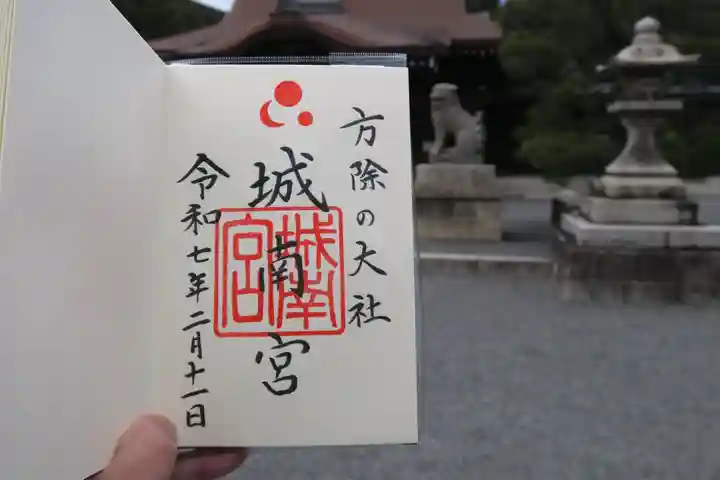 方除の大社
城南宮
城南宮
令和七年二月十一日